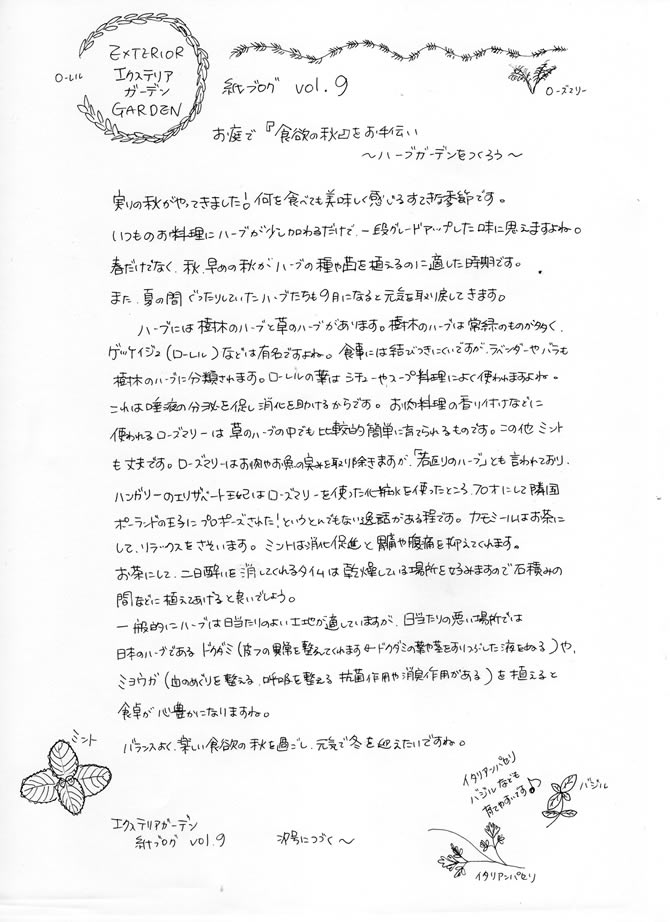 EXTERIOR
エクステリア
ガーデン
GARDEN
ローレル
紙ブログ vol.9
ローズマリー
お庭で『食欲の秋』をお手伝い
～ハーブガーデンをつくろう～
実りの秋がやってきました！何を食べても美味しく感じるすてきな季節です。
いつものお料理にハーブが少し加わるだけで、一段グレードアップした味に思えますよね。
春だけでなく、秋、早めの秋がハーブの種や苗を植えるのに適した時期です。
また、夏の間ぐったりしていたハーブたちも9月になると元気を取り戻してきます。
ハーブには樹木のハーブと草のハーブがあります。樹木のハーブは常緑のものが多く、
ゲッケイジュ（ローレル）などは有名ですよね。食事には結びつきにくいですが、ラベンダーやバラも
樹木のハーブに分類されます。ローレルの葉はシチューやスープ料理によく使われますよね。
これは唾液の分泌を促し消化を助けるからです。お肉料理の香り付けなどに
使われるローズマリーは草のハーブの中でも比較的簡単に育てられるものです。この他ミント
も丈夫です。ローズマリーはお肉やお魚の臭みを取り除きますが、「若返りのハーブ」とも言われており、
ハンガリーのエリザベート王妃はローズマリーを使った化粧水を使ったところ、70才にして隣国
ポーランドの王子にプロポーズされた！というとんでもない逸話がある程です。カモミールはお茶に
して、リラックスをさそいます。ミントは消化促進と胃痛や腹痛を抑えてくれます。
お茶にして、二日酔いを消してくれるタイムは乾燥している場所を好みますので石積みの
間などに植えてあげると良いでしょう。
一般的にハーブは日当たりのよい土地が適していますが、日当たりの悪い場所では
日本のハーブであるドクダミ（皮フの異常を整えてくれます←ドクダミの葉や茎をすりつぶした液をぬる）や、
ミョウガ（血のめぐりを整える、呼吸を整える 抗菌作用や消臭作用がある）を植えると
食卓が心豊かになりますね。
バランスよく、楽しい食欲の秋を過ごし、元気で冬を迎えたいですね。
ミント
イタリアンパセリ
バジルなども
育てやすいです♪
バジル
イタリアンパセリ
エクステリアガーデン
紙ブログ vol.9 次号につづく～